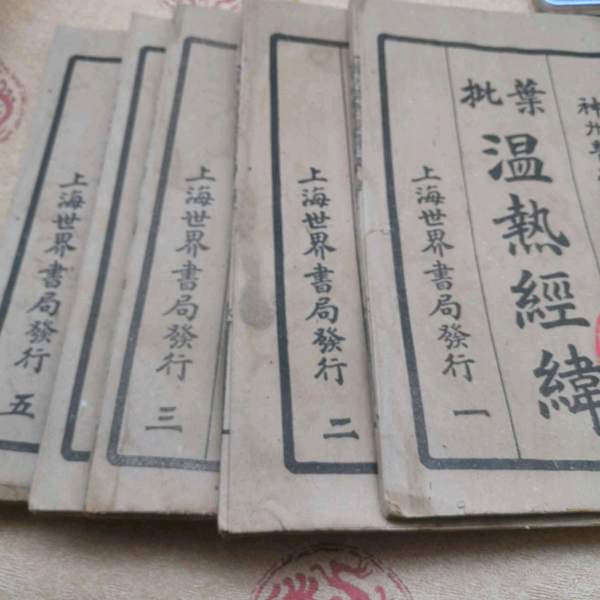 神州醫
葉批
温熱經緯
上海世界書局發行
一
上海世界書局發行
二
上海世界書局發行
三
上海世界書局發行
五